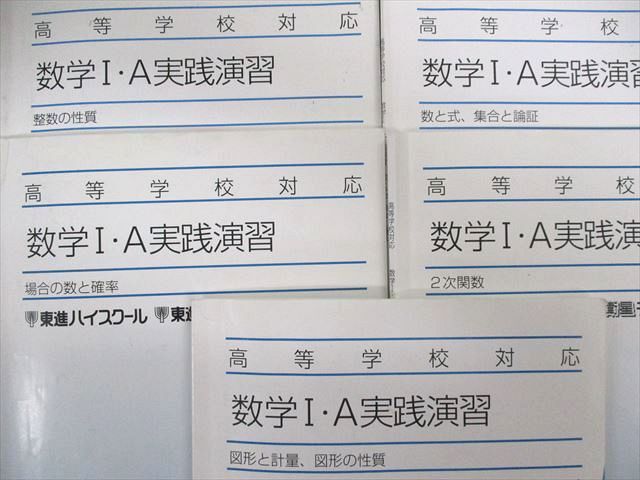 高等学校対応
数学Ⅰ・A実践演習
整数の性質
高等学校
数学Ⅰ・A実践演
数と式、集合と論証
高等学校対応
数学Ⅰ・A実践演習
場合の数と確率
東進ハイスクール 東進
高等学校対応
高等学校
数学Ⅰ・A実践演
2次関数
衛星
高等学校対応
数学Ⅰ・A実践演習
図形と計量、図形の性質